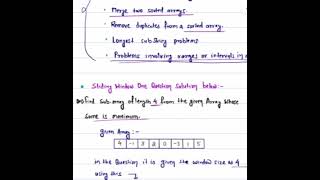 • Merge two sorted arrays.
• Remove duplicates from a sorted array.
• Longest substring problems
• Problems involving ranges or intervals in
• Sliding Window One Question Solution below:-
find Sub-array of length 4 from the given Array Whose
Sume is maximum.
given Array:-
4 -1 3 2 0 -3 1 5
in the Question it is given the window size is 4
using this